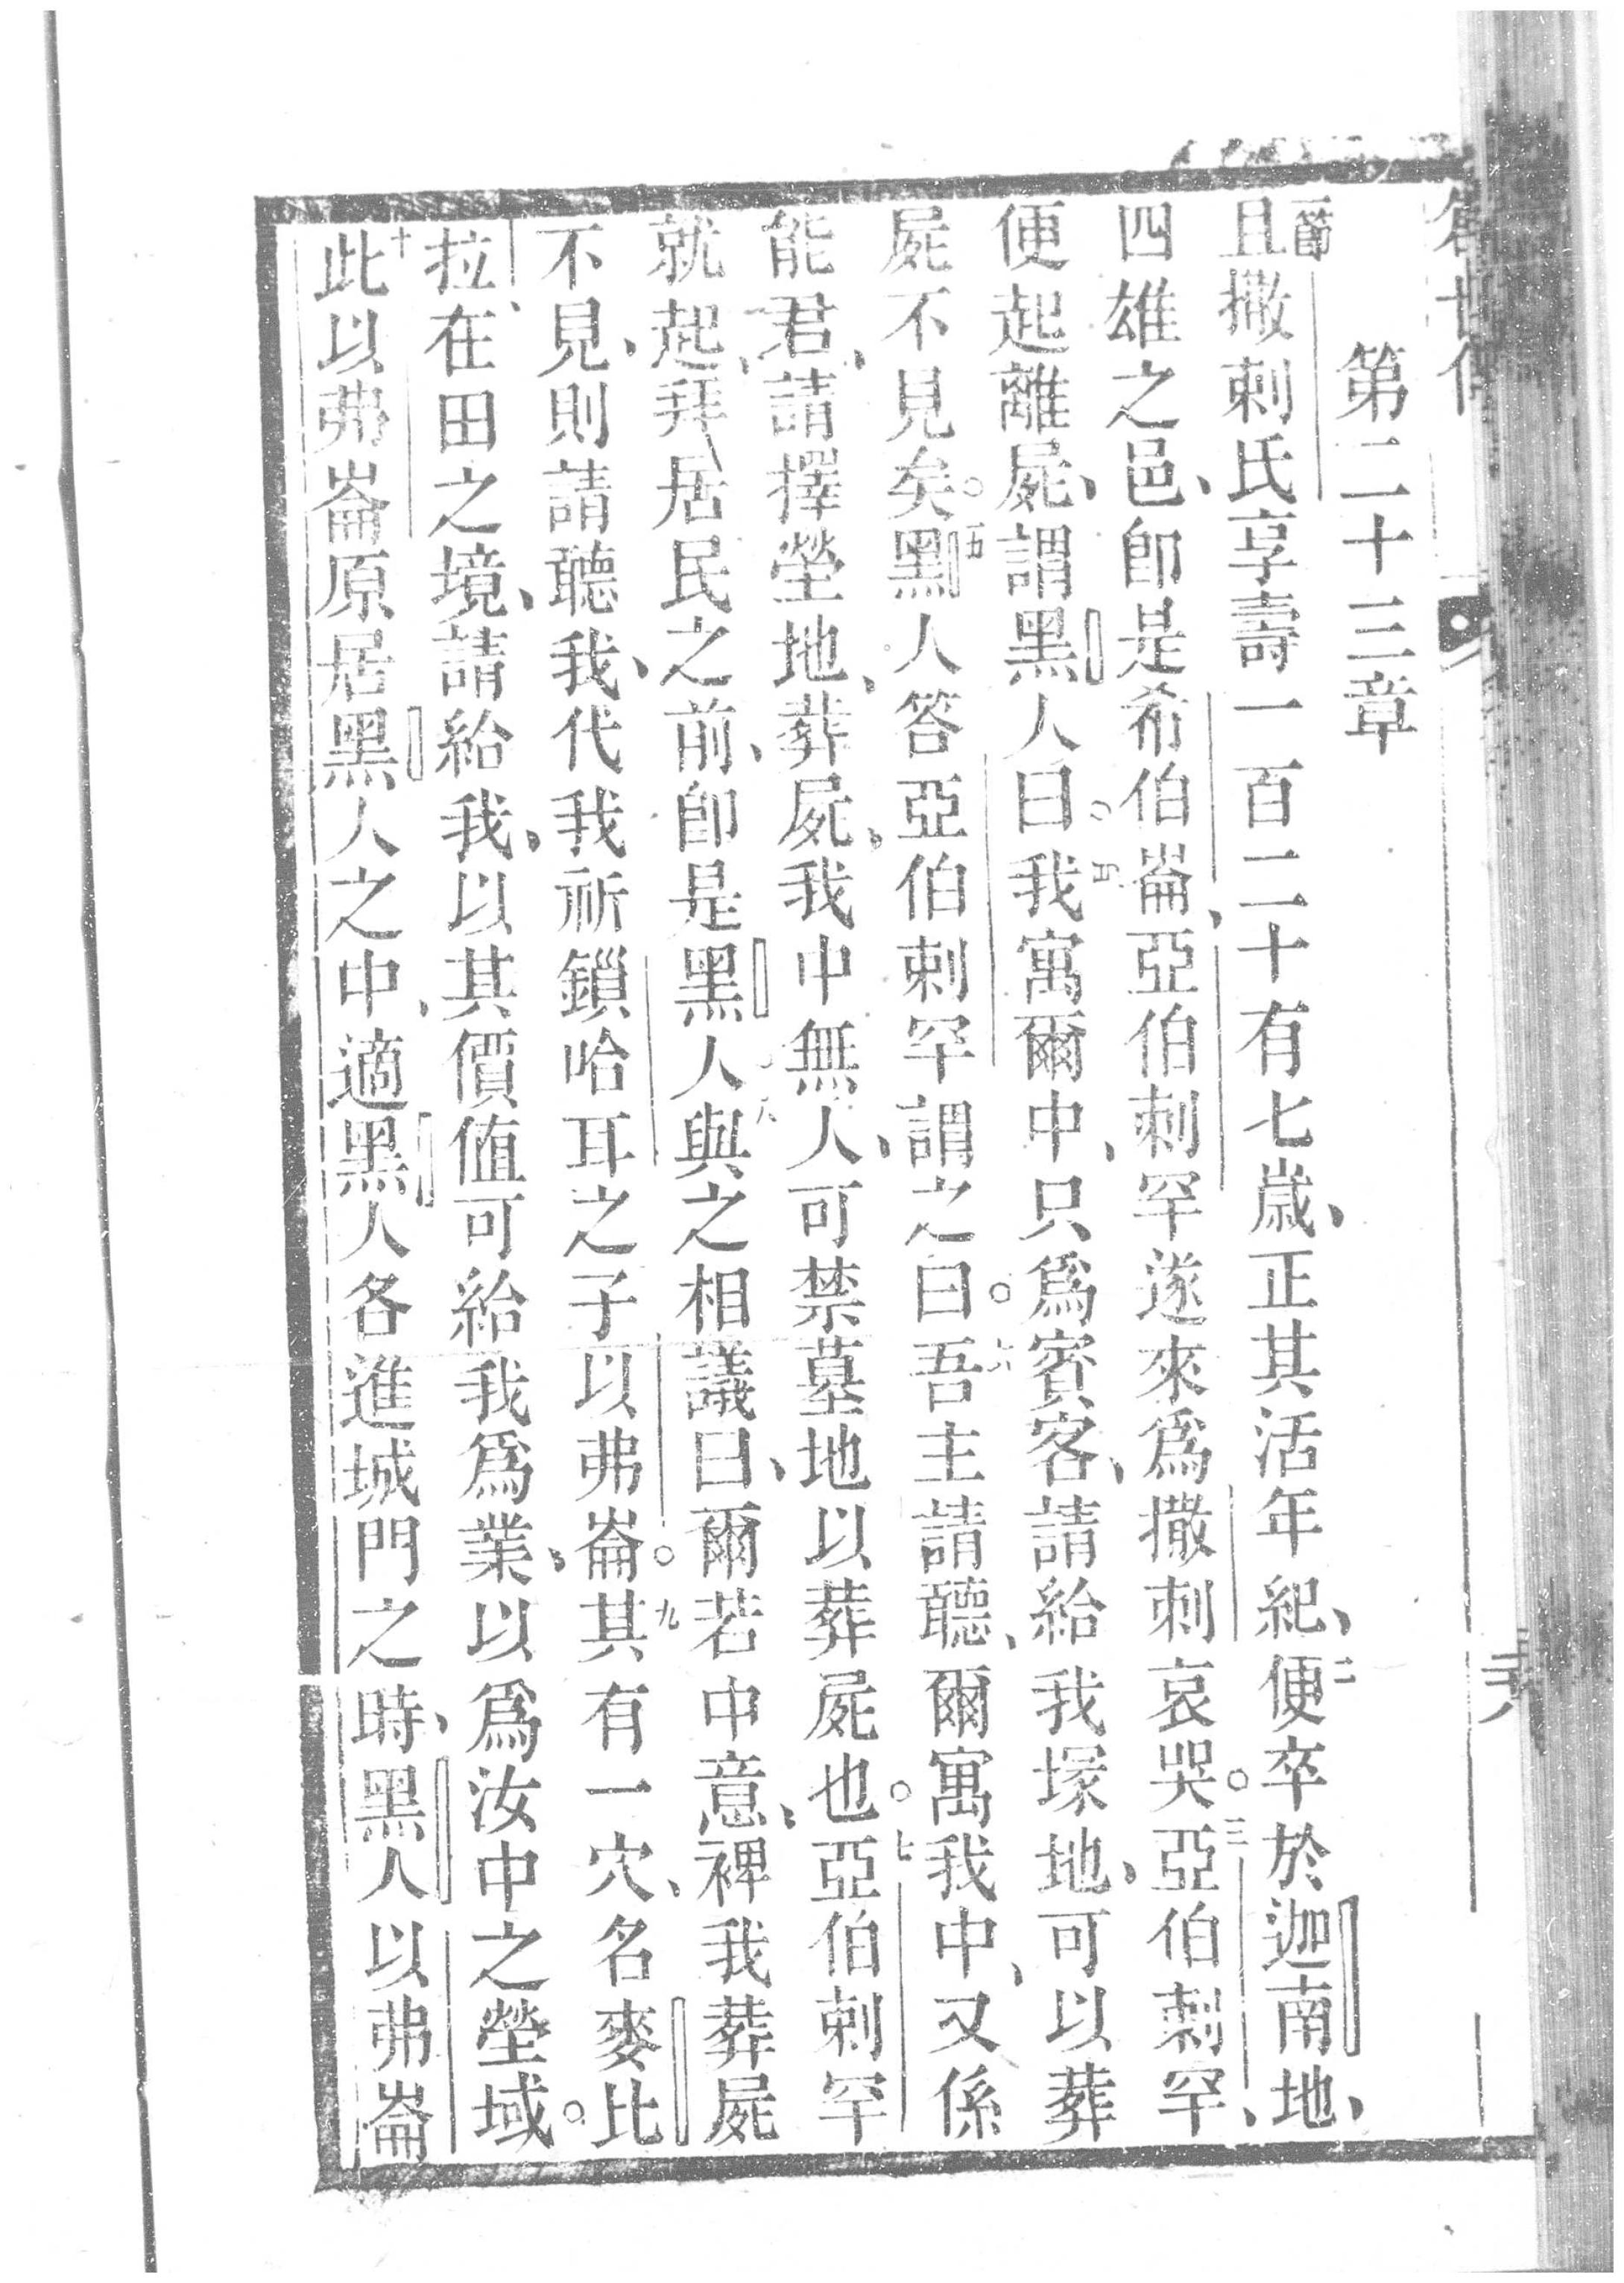 創世傳
第二十三章
一節且撒剌氏享壽一百二十有七歲、正其活年紀、二便卒於迦南地、
四雄之邑、卽是希伯崙、亞伯剌罕遂來爲撒剌哀哭。三亞伯剌罕、
便起離屍、謂黑人曰。我寓爾中、只爲賓客、請給我塚地、可以葬
屍不見矣。五黑人答亞伯剌罕謂之曰。六吾主請聽、爾寓我中、又係
能君、請擇塋地、葬屍、我中無人、可禁墓地以葬屍也。七亞伯剌罕
就起、拜居民之前、卽是黑人八與之相議曰、爾若中意、裨我葬屍
不見、則請聽我、代我祈鎖哈耳之子以弗崙。九其有一穴、名麥比
拉、在田之境、請給我、以其價値可給我爲業、以爲汝中之塋域。
十此以弗崙原居黑人之中、適黑人各進城門之時、黑人以弗崙